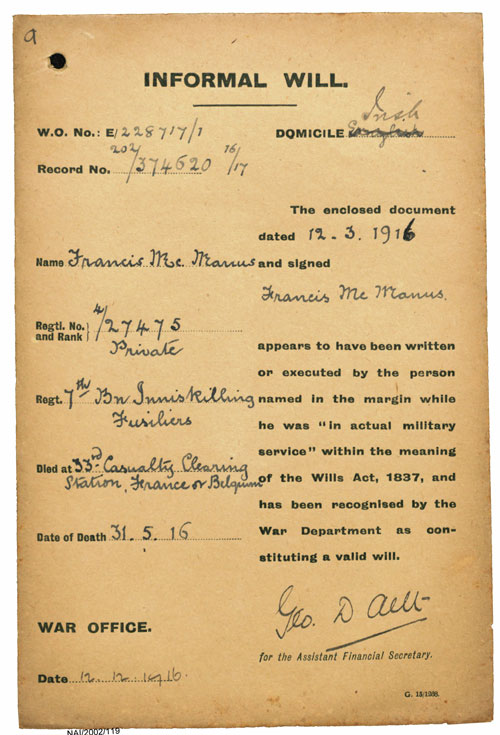 a
INFORMAL WILL.
W.O. No.: E/228717/1
DOMICILE English Irish
Record No. 202/374620 16/17
The enclosed document
dated 12.3.1916
Name Francis Mc. Manus and signed
Francis Mc Manus.
Regtl. No. and Rank } 4/27475
Private
appears to have been written
or executed by the person
Regt. 7th Bn Inniskilling
named in the margin while
Fusiliers
he was "in actual military
service" within the meaning
Died at 33rd Casualty Clearing
Station, France or Belgium
of the Wills Act, 1837, and
has been recognised by the
War Department as con-
Date of Death 31.5.16
stituting a valid will.
Geo. D
WAR OFFICE.
for the Assistant Financial Secretary.
Date 12.12.1916.
G. 13/1398.
NAI/2002/119